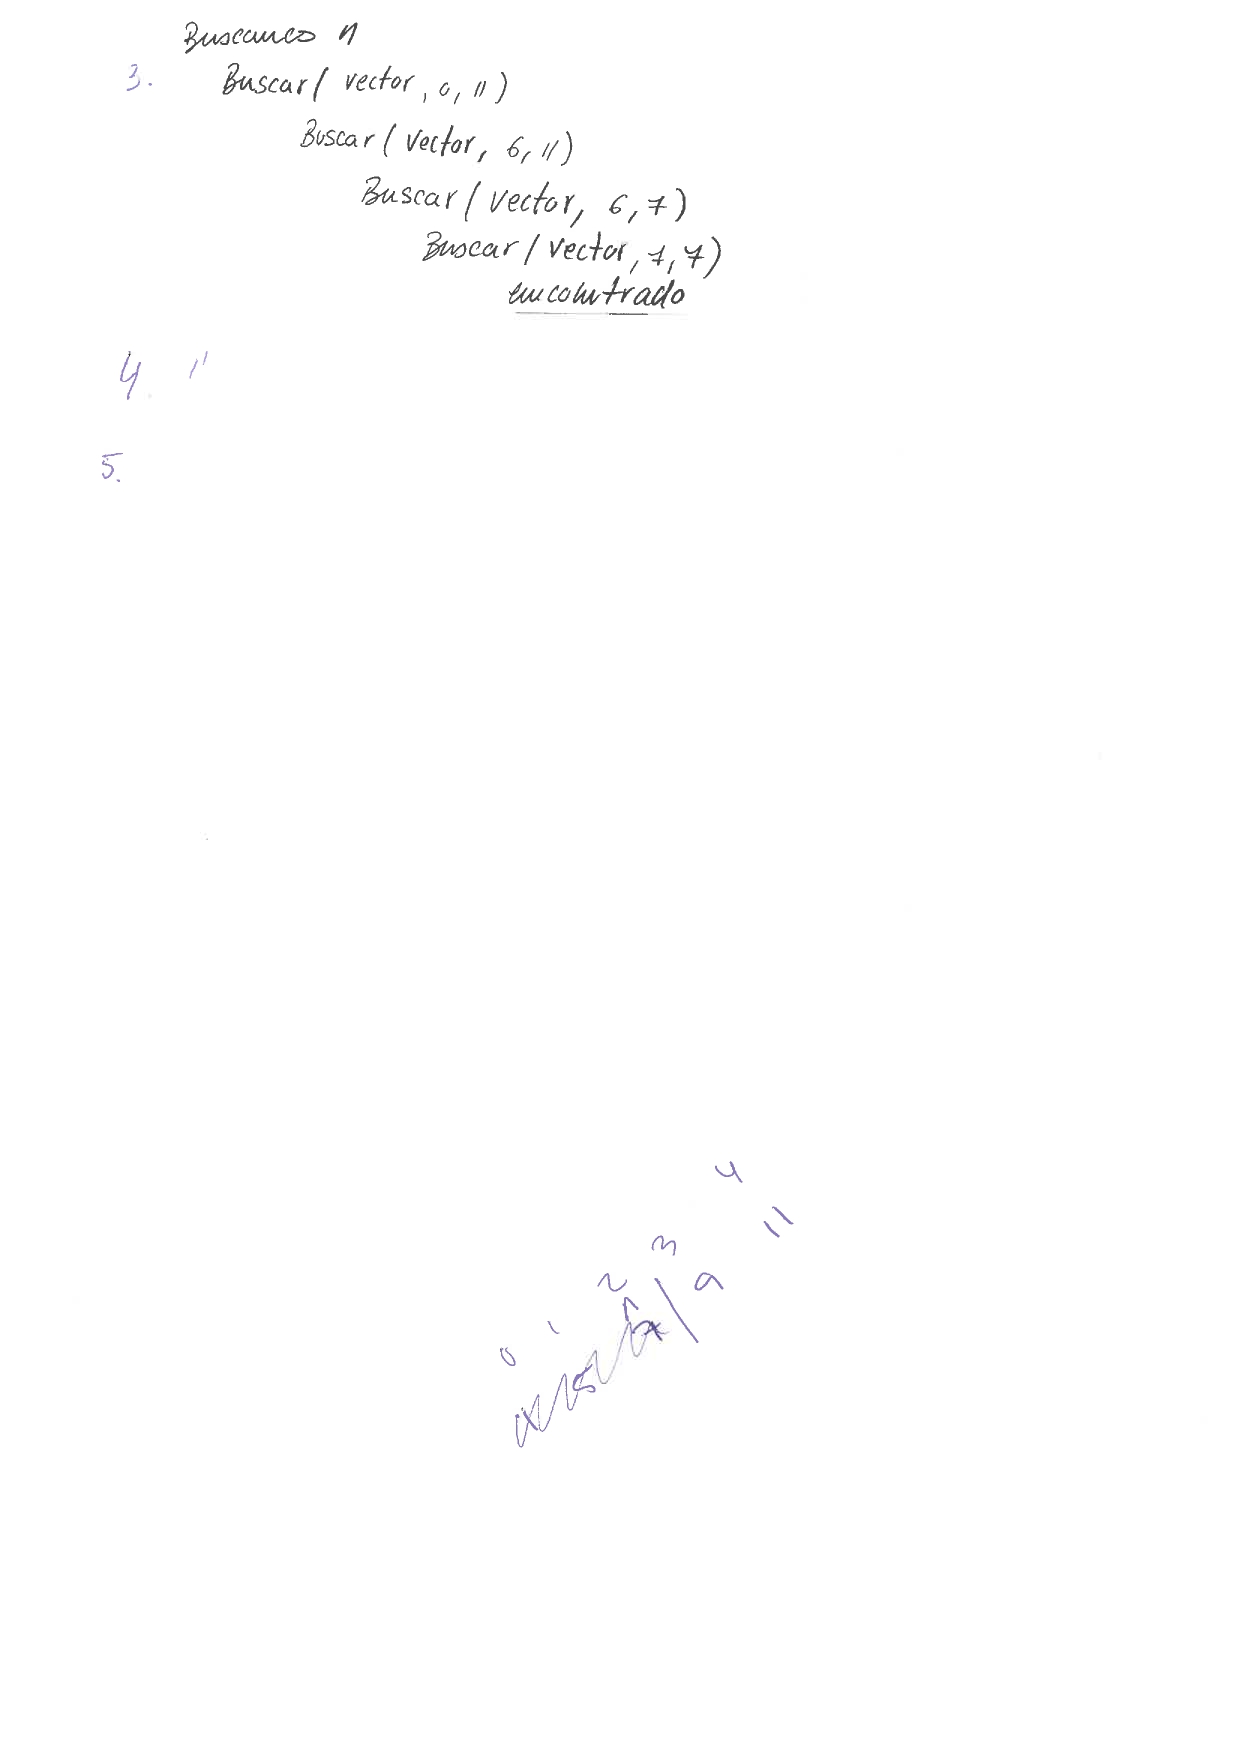 Buscamos 11
3. Buscar( vector, 0, 11)
Buscar( vector, 6, 11)
Buscar( vector, 6, 7)
Buscar( vector, 7, 7)
encontrado
4. 11
5.
0 1 2 3 4
5 7 9 11